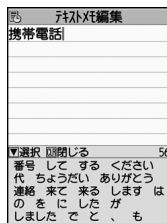 テキストメモ編集
携帯電話
▼選択 閉じる 56
番号 して する ください
代 ちょうだい ありがとう
連絡 来て 来る します は
の を に した が
しました で と 、 も